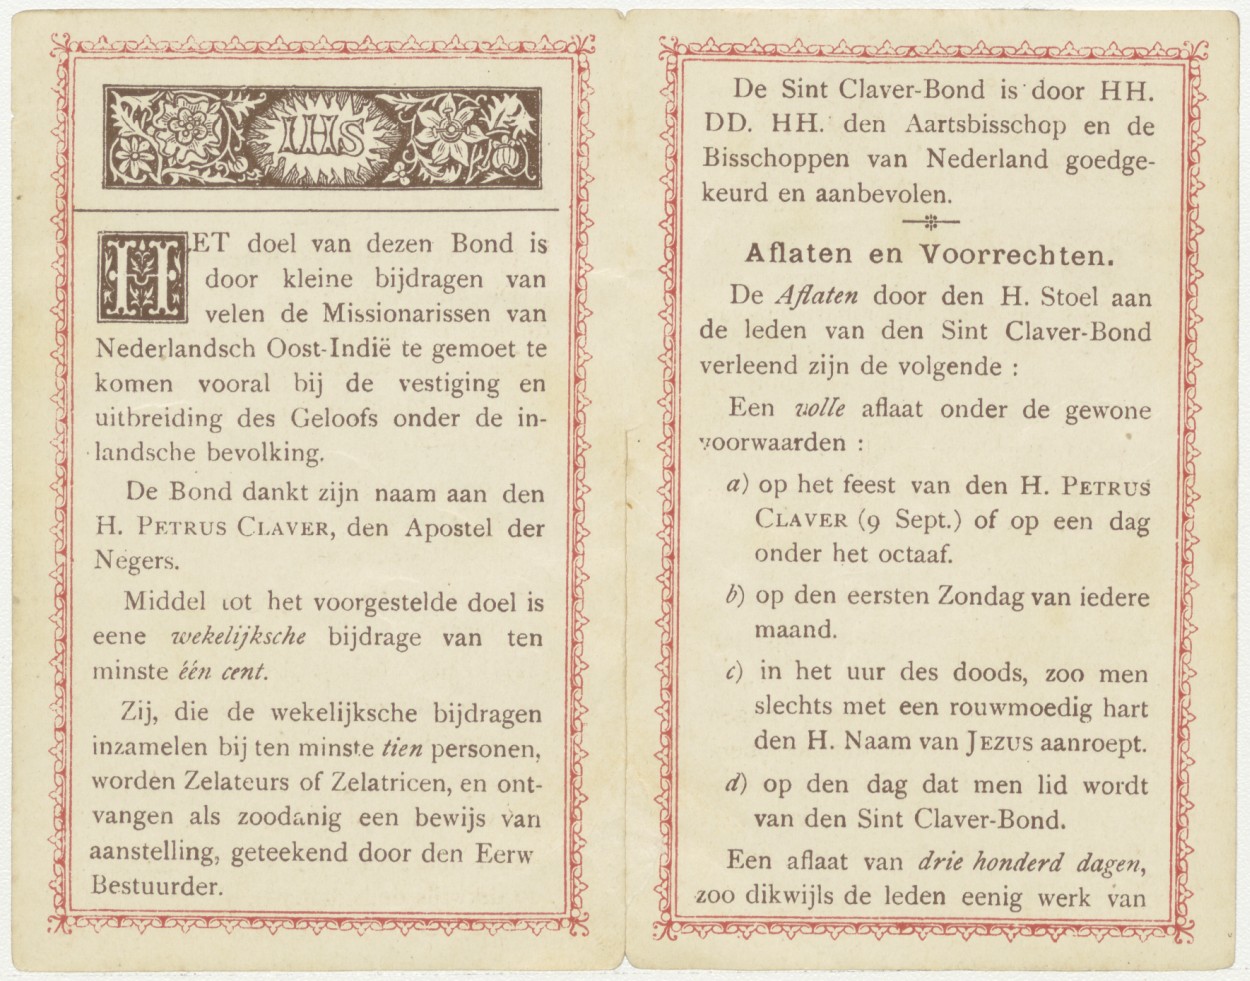 IHS
HET doel van dezen Bond is
door kleine bijdragen van
velen de Missionarissen van
Nederlandsch Oost-Indië te gemoet te
komen vooral bij de vestiging en
uitbreiding des Geloofs onder de in-
landsche bevolking.
De Bond dankt zijn naam aan den
H. PETRUS CLAVER, den Apostel der
Negers.
Middel tot het voorgestelde doel is
eene wekelijksche bijdrage van ten
minste één cent.
Zij, die de wekelijksche bijdragen
inzamelen bij ten minste tien personen,
worden Zelateurs of Zelatricen, en ont-
vangen als zoodanig een bewijs van
aanstelling, geteekend door den Eerw
Bestuurder.
De Sint Claver-Bond is door HH.
DD. HH. den Aartsbisschop en de
Bisschoppen van Nederland goedge-
keurd en aanbevolen.
Aflaten en Voorrechten.
De Aflaten door den H. Stoel aan
de leden van den Sint Claver-Bond
verleend zijn de volgende :
Een volle aflaat onder de gewone
voorwaarden :
a) op het feest van den H. PETRUS
CLAVER (9 Sept.) of op een dag
onder het octaaf.
b) op den eersten Zondag van iedere
maand.
c) in het uur des doods, zoo men
slechts met een rouwmoedig hart
den H. Naam van JEZUS aanroept.
d) op den dag dat men lid wordt
van den Sint Claver-Bond.
Een aflaat van drie honderd dagen,
zoo dikwijls de leden eenig werk van